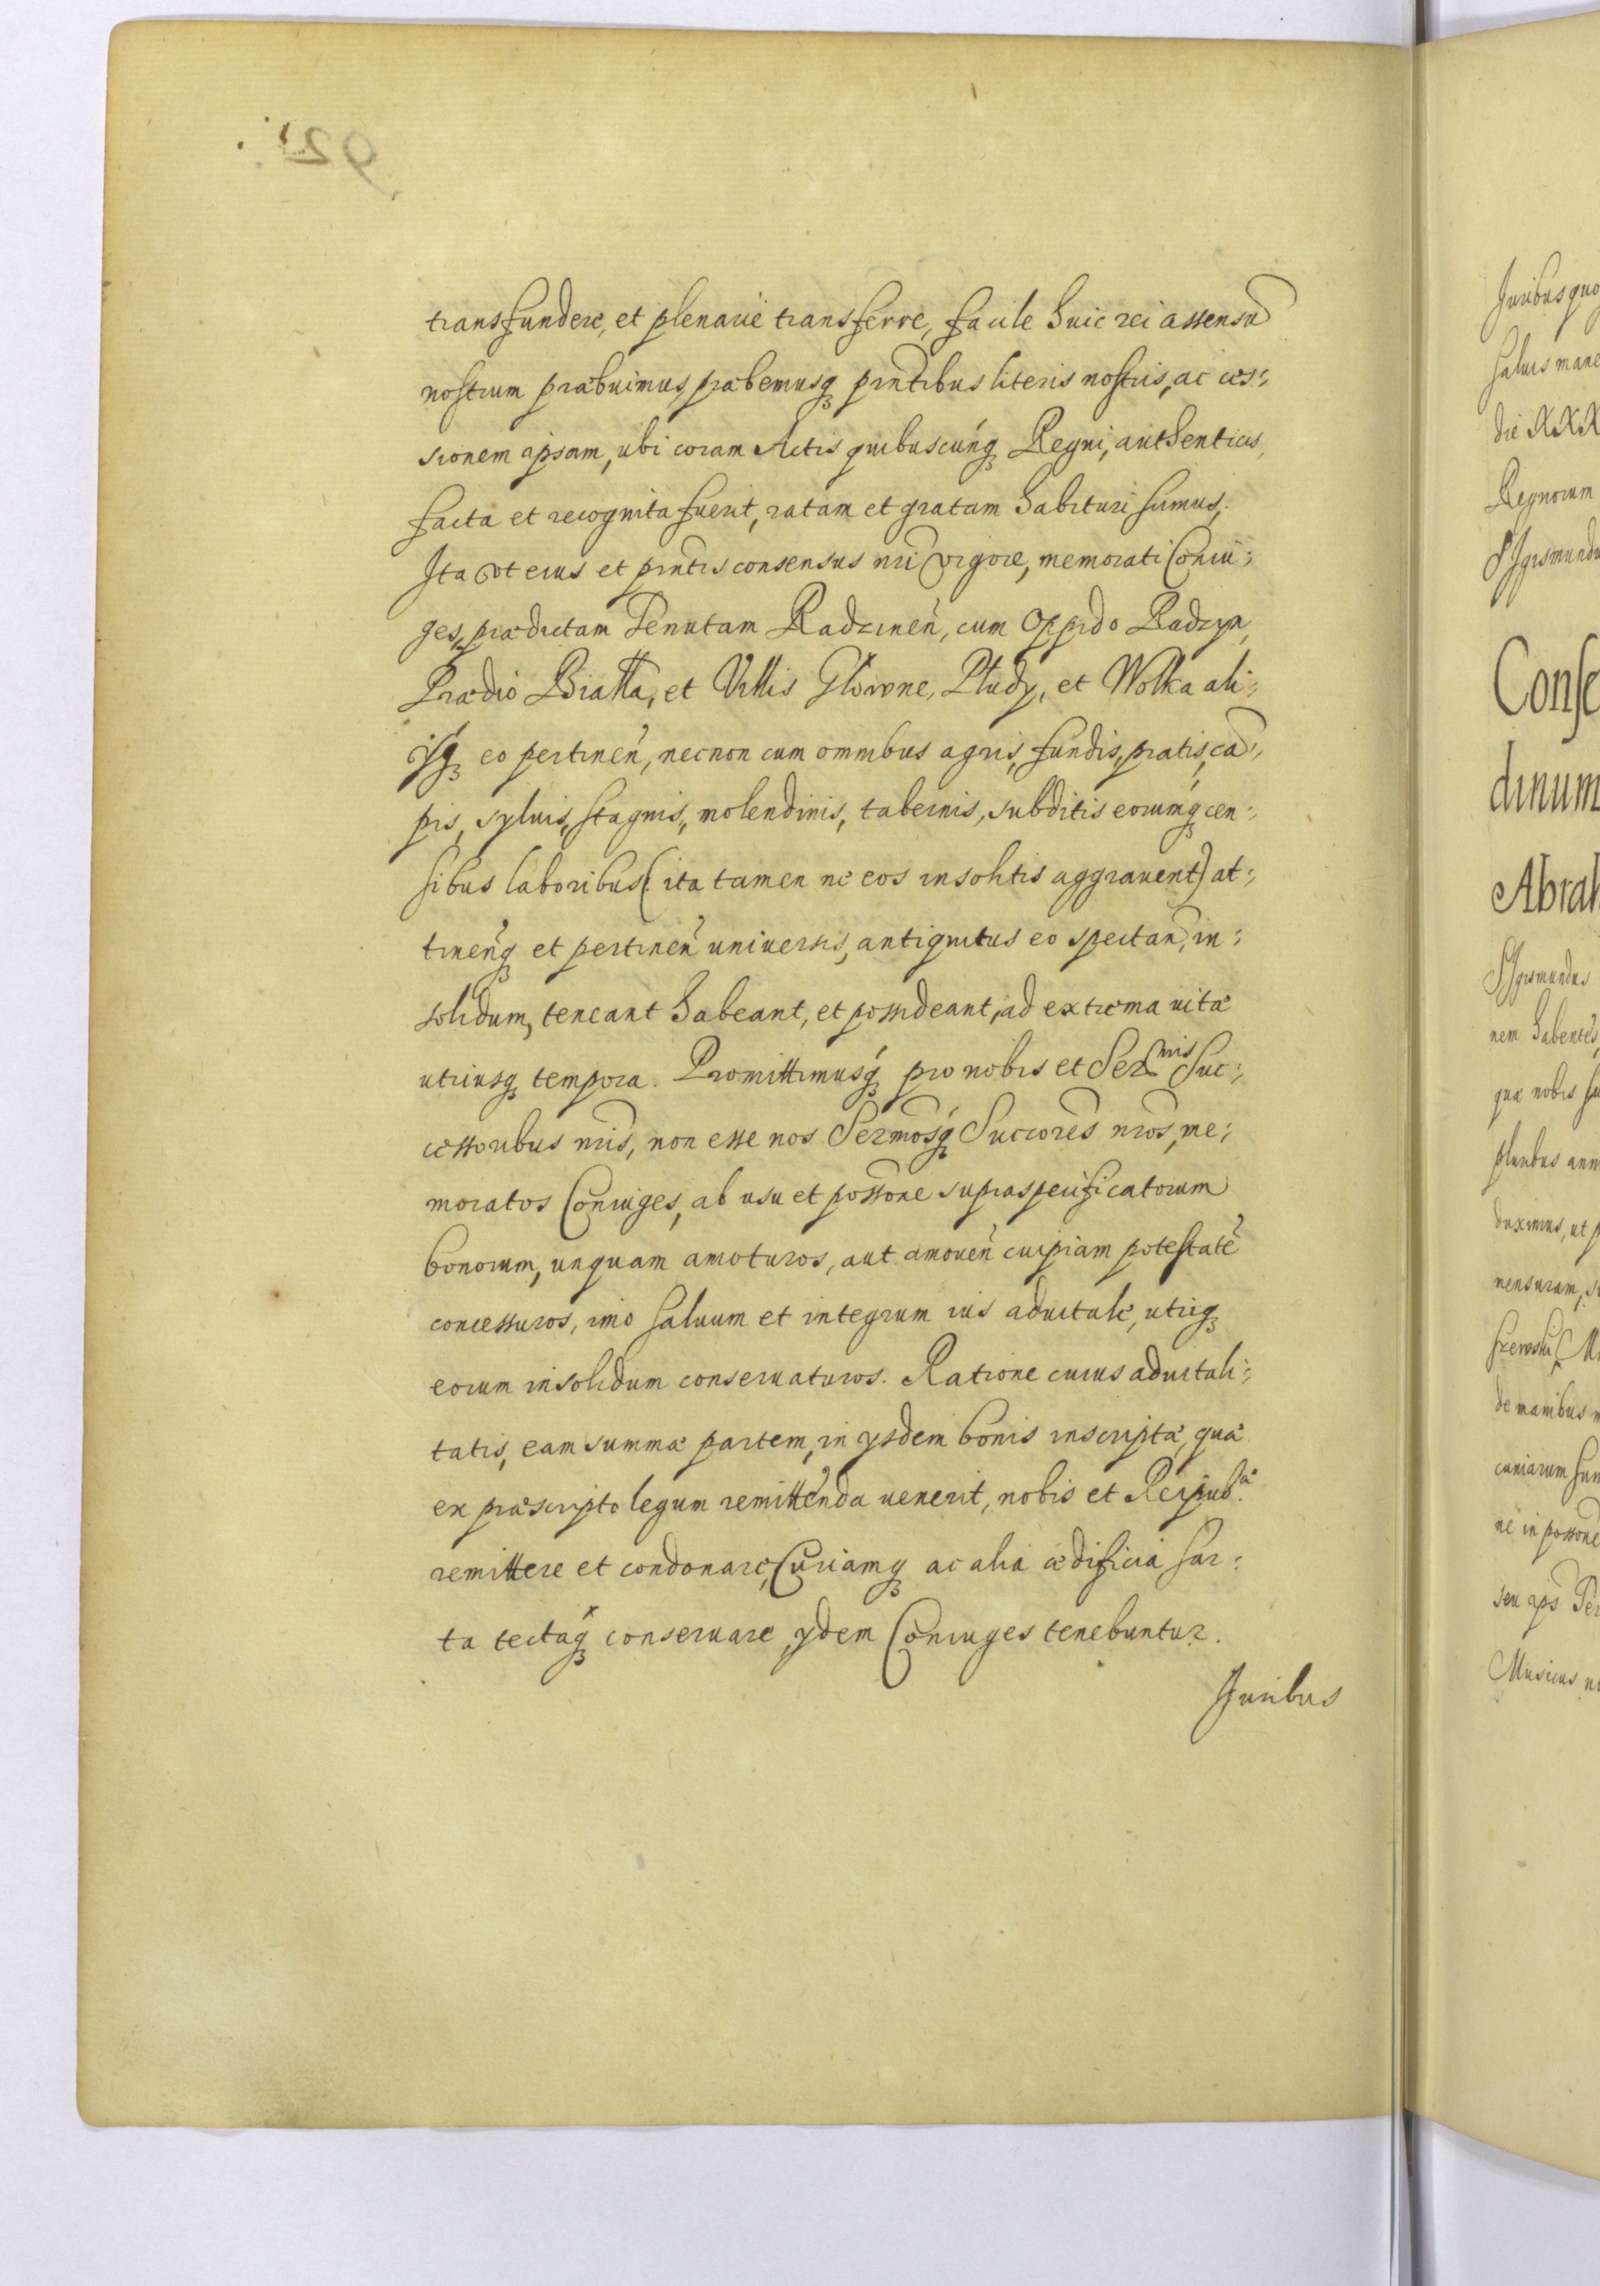 transfundere, et plenarie transferre, facile huic rei assensũ
nostrum præbuimus, præbemusq; pñtibus literis nostris, ac ces-
sionem ipsam, ubi coram Actis quibuscunq; Regni, authenticis,
facta et recognita fuerit, ratam et gratam habituri sumus,
Ita vt eius et pñtis consensus nri vigore, memorati Coniu-
ges, prædictam Tenutam Radzineñ, cum Oppido Radzyn,
Prædio Białła, et Villis Głowne, Płudy, et Wolka ali-
ijsq; eo pertineñ, necnon cum omnibus agris, fundis, pratis, cã-
pis, syluis, stagnis, molendinis, tabernis, subditis eorumq; cen-
sibus laboribus (ita tamen ne eos insolitis aggrauent) at-
tineñq; et pertineñ uniuersis, antiquitus eo spectañ, in-
solidum, teneant habeant, et possideant, ad extrema uitæ
utriusq; tempora. Promittimusq; pro nobis et Ser<sup>mis</sup> Suc-
cessoribus nris, non esse nos Sermosq; Succores nros, me-
moratos Coniuges, ab usu et possone supraspecificatorum
bonorum, unquam amoturos, aut amoueñ cuipiam potestatẽ
concessuros, imo saluum et integrum ius aduitale, utriq;
eorum insolidum conseruaturos. Ratione cuius aduitali-
tatis, eam summæ partem, in ysdem bonis inscriptæ, quæ
ex præscripto legum remittenda uenerit, nobis et Reipub<sup>æ</sup>.
remittere et condonare, Curiamq; ac alia ædificia sar-
ta tectaq; conseruare, ydem Coniuges tenebuntur.
Iuribus
92
Iuribus quo
saluis mane
die XXX
Regnorum
Sigismundu
Conse
dinum
Abrah
Sigismundus
nem habentes
quæ nobis
pluribus ann
duximus, ut p
mensuram,
de manibus m
ne in possone
seu ips
Musicus n